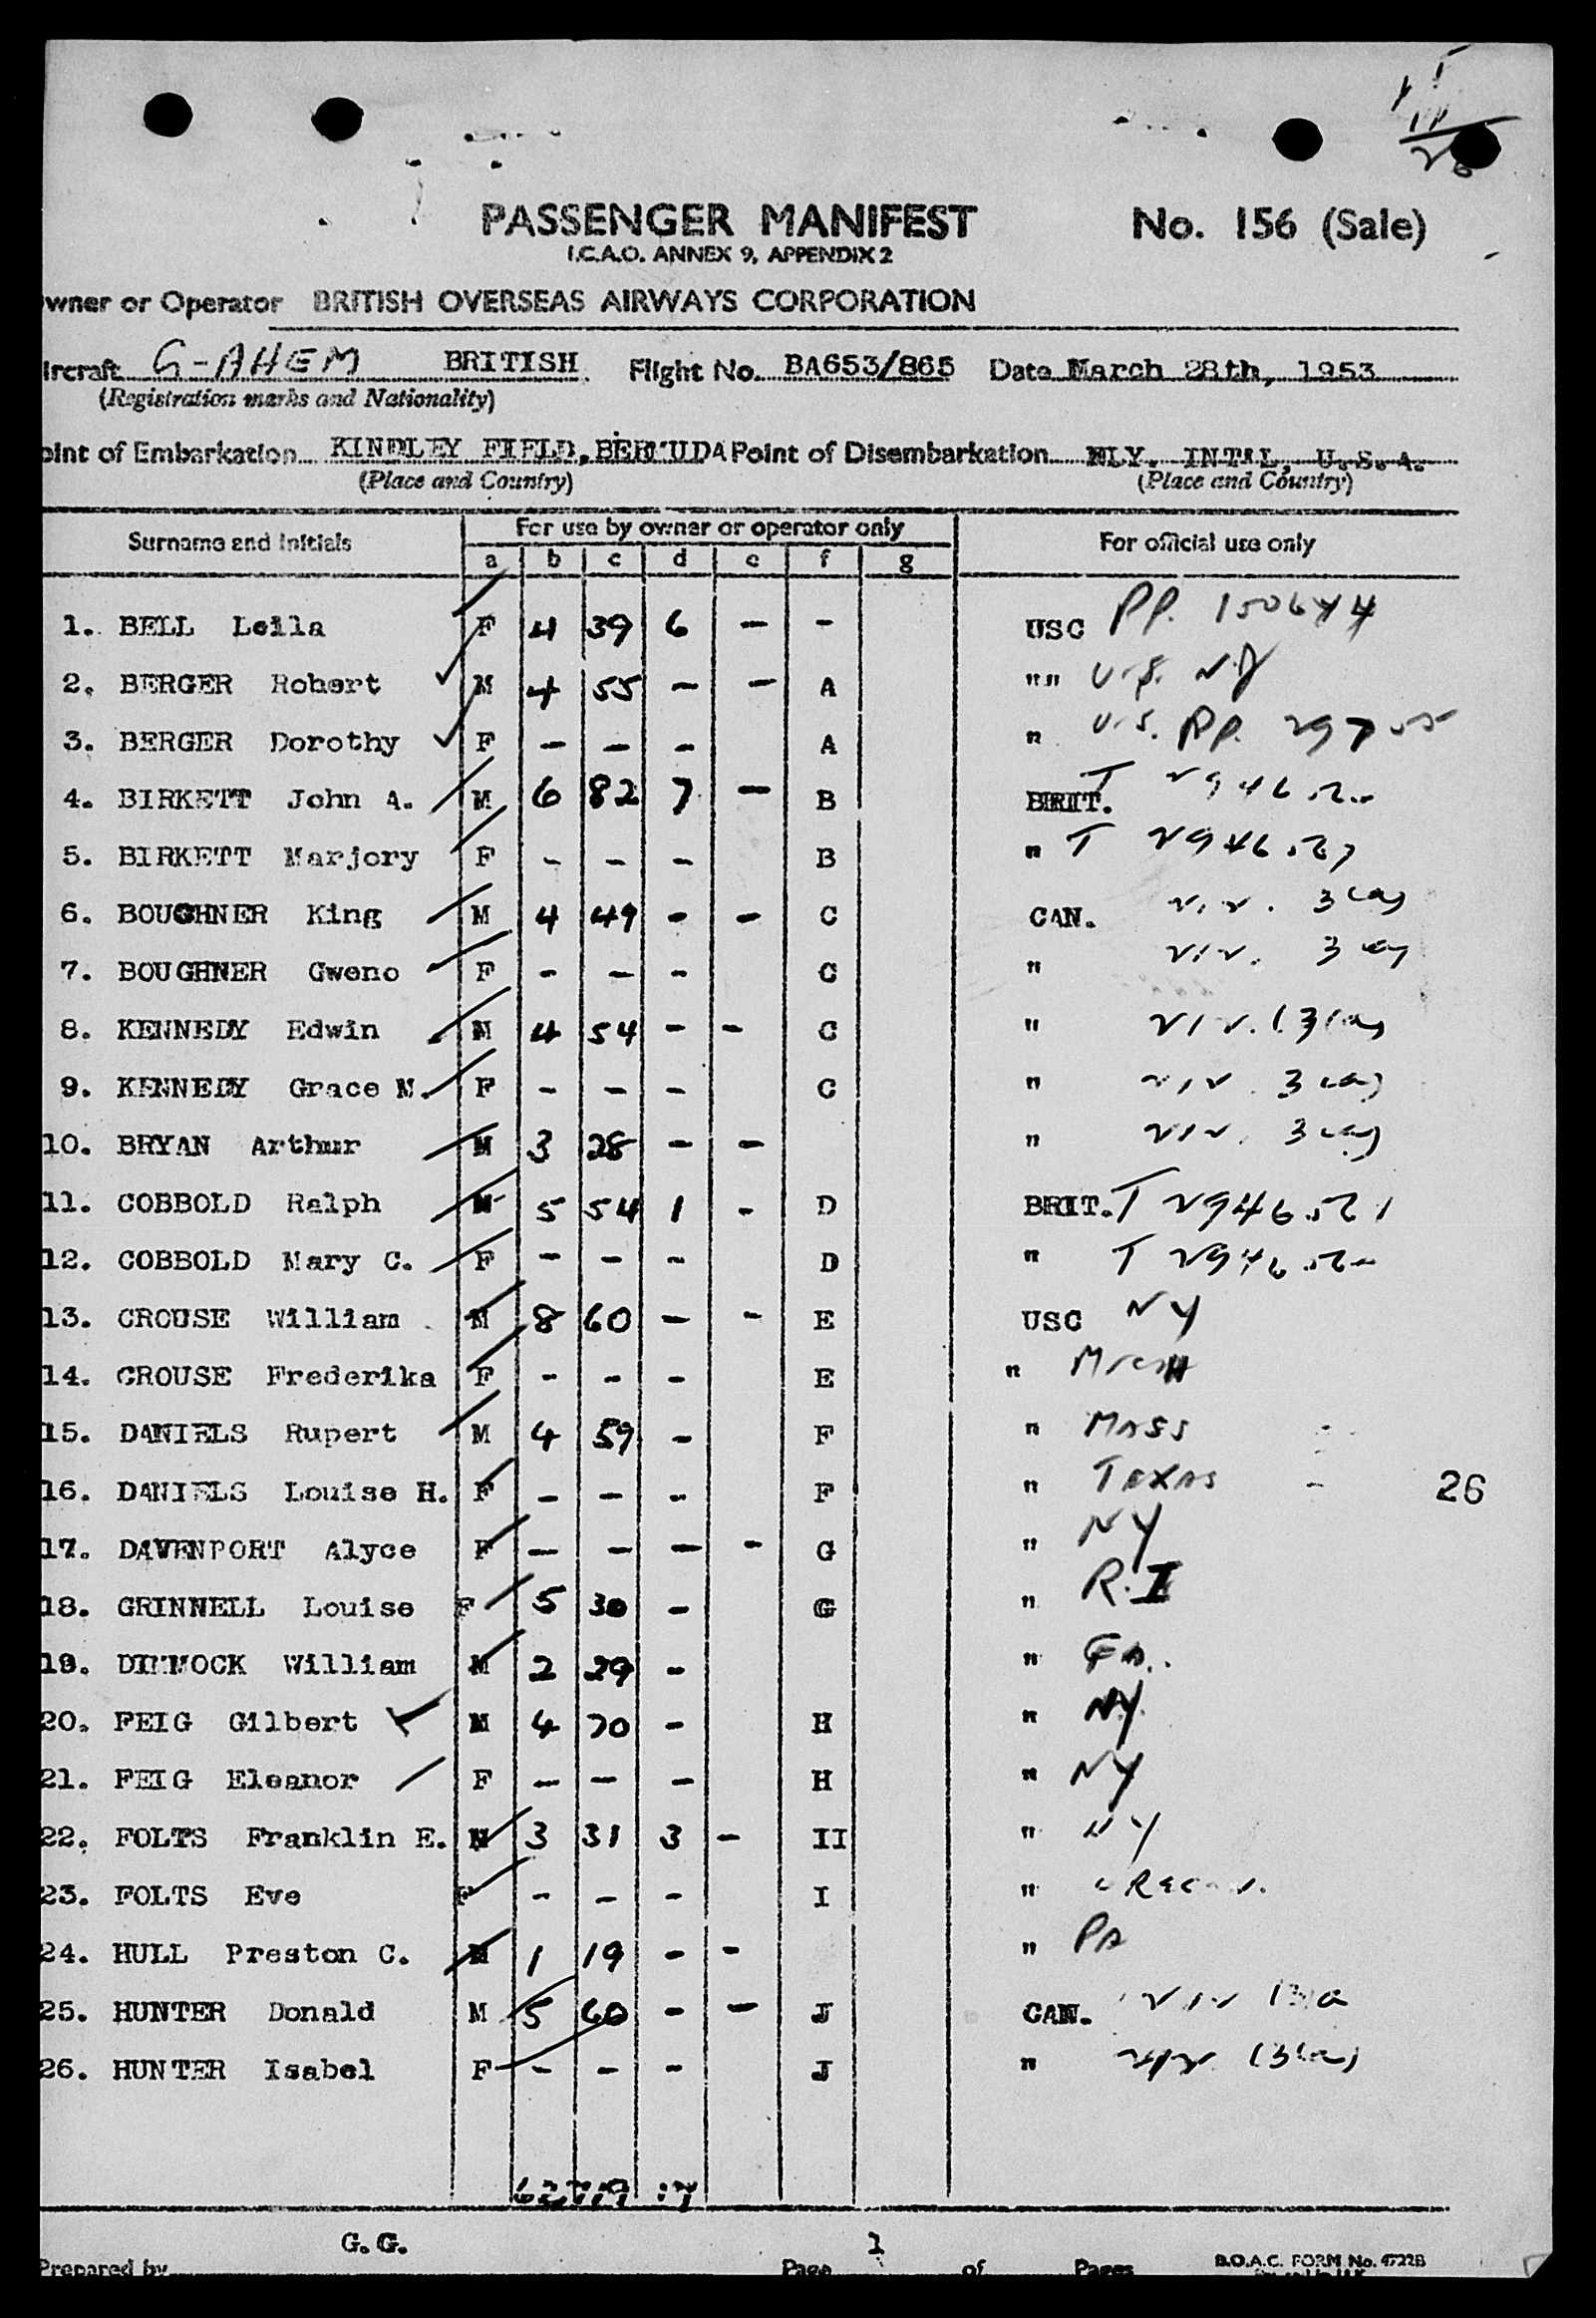 PASSENGER MANIFEST No. 156 (Sale)
I.C.A.O. ANNEX 9, APPENDIX 2
wner or Operator BRITISH OVERSEAS AIRWAYS CORPORATION
ircraft G-AHEM BRITISH Flight No. BA653/865 Date March 28th, 1953
(Registration marks and Nationality)
oint of Embarkation KINDLEY FIELD, BERMUDA Point of Disembarkation INT'L, U.S.A.
(Place and Country) (Place and Country)
Surname and Initials For use by owner or operator only For official use only
a b c d e f g
1. BELL Leila F 4 39 6 - - USC PP. 150644
2. BERGER Robert M 4 55 - - A "" U.S. NY
3. BERGER Dorothy F - - - A " U.S. PP. 29755
4. BIRKETT John A. M 6 82 7 - B BRIT. T
5. BIRKETT Marjory F - - - B " T
6. BOUGHNER King M 4 49 - - C CAN.
7. BOUGHNER Gweno F - - - C "
8. KENNEDY Edwin M 4 54 - - C "
9. KENNEDY Grace M. F - - - C "
10. BRYAN Arthur M 3 28 - - "
11. COBBOLD Ralph M 5 54 1 - D BRIT. T
12. COBBOLD Mary C. F - - - D " T
13. CROUSE William M 8 60 - - E USC NY
14. CROUSE Frederika F - - - E " MICH
15. DANIELS Rupert M 4 59 - F " MASS
16. DANIELS Louise H. F - - - F " TEXAS - 26
17. DAVENPORT Alyce F - - - - G " NY
18. GRINNELL Louise F 5 30 - G " R.I
19. DIMMOCK William M 2 29 - "
20. FEIG Gilbert M 4 70 - H " NY.
21. FEIG Eleanor F - - - H " NY
22. FOLTS Franklin E. M 3 31 3 - II " NY
23. FOLTS Eve F - - - I "
24. HULL Preston C. M 1 19 - - " PA
25. HUNTER Donald M 5 60 - - J CAN.
26. HUNTER Isabel F - - - J "
G.G. 1
Prepared by Page of Pages B.O.A.C. FORM No. 4722B